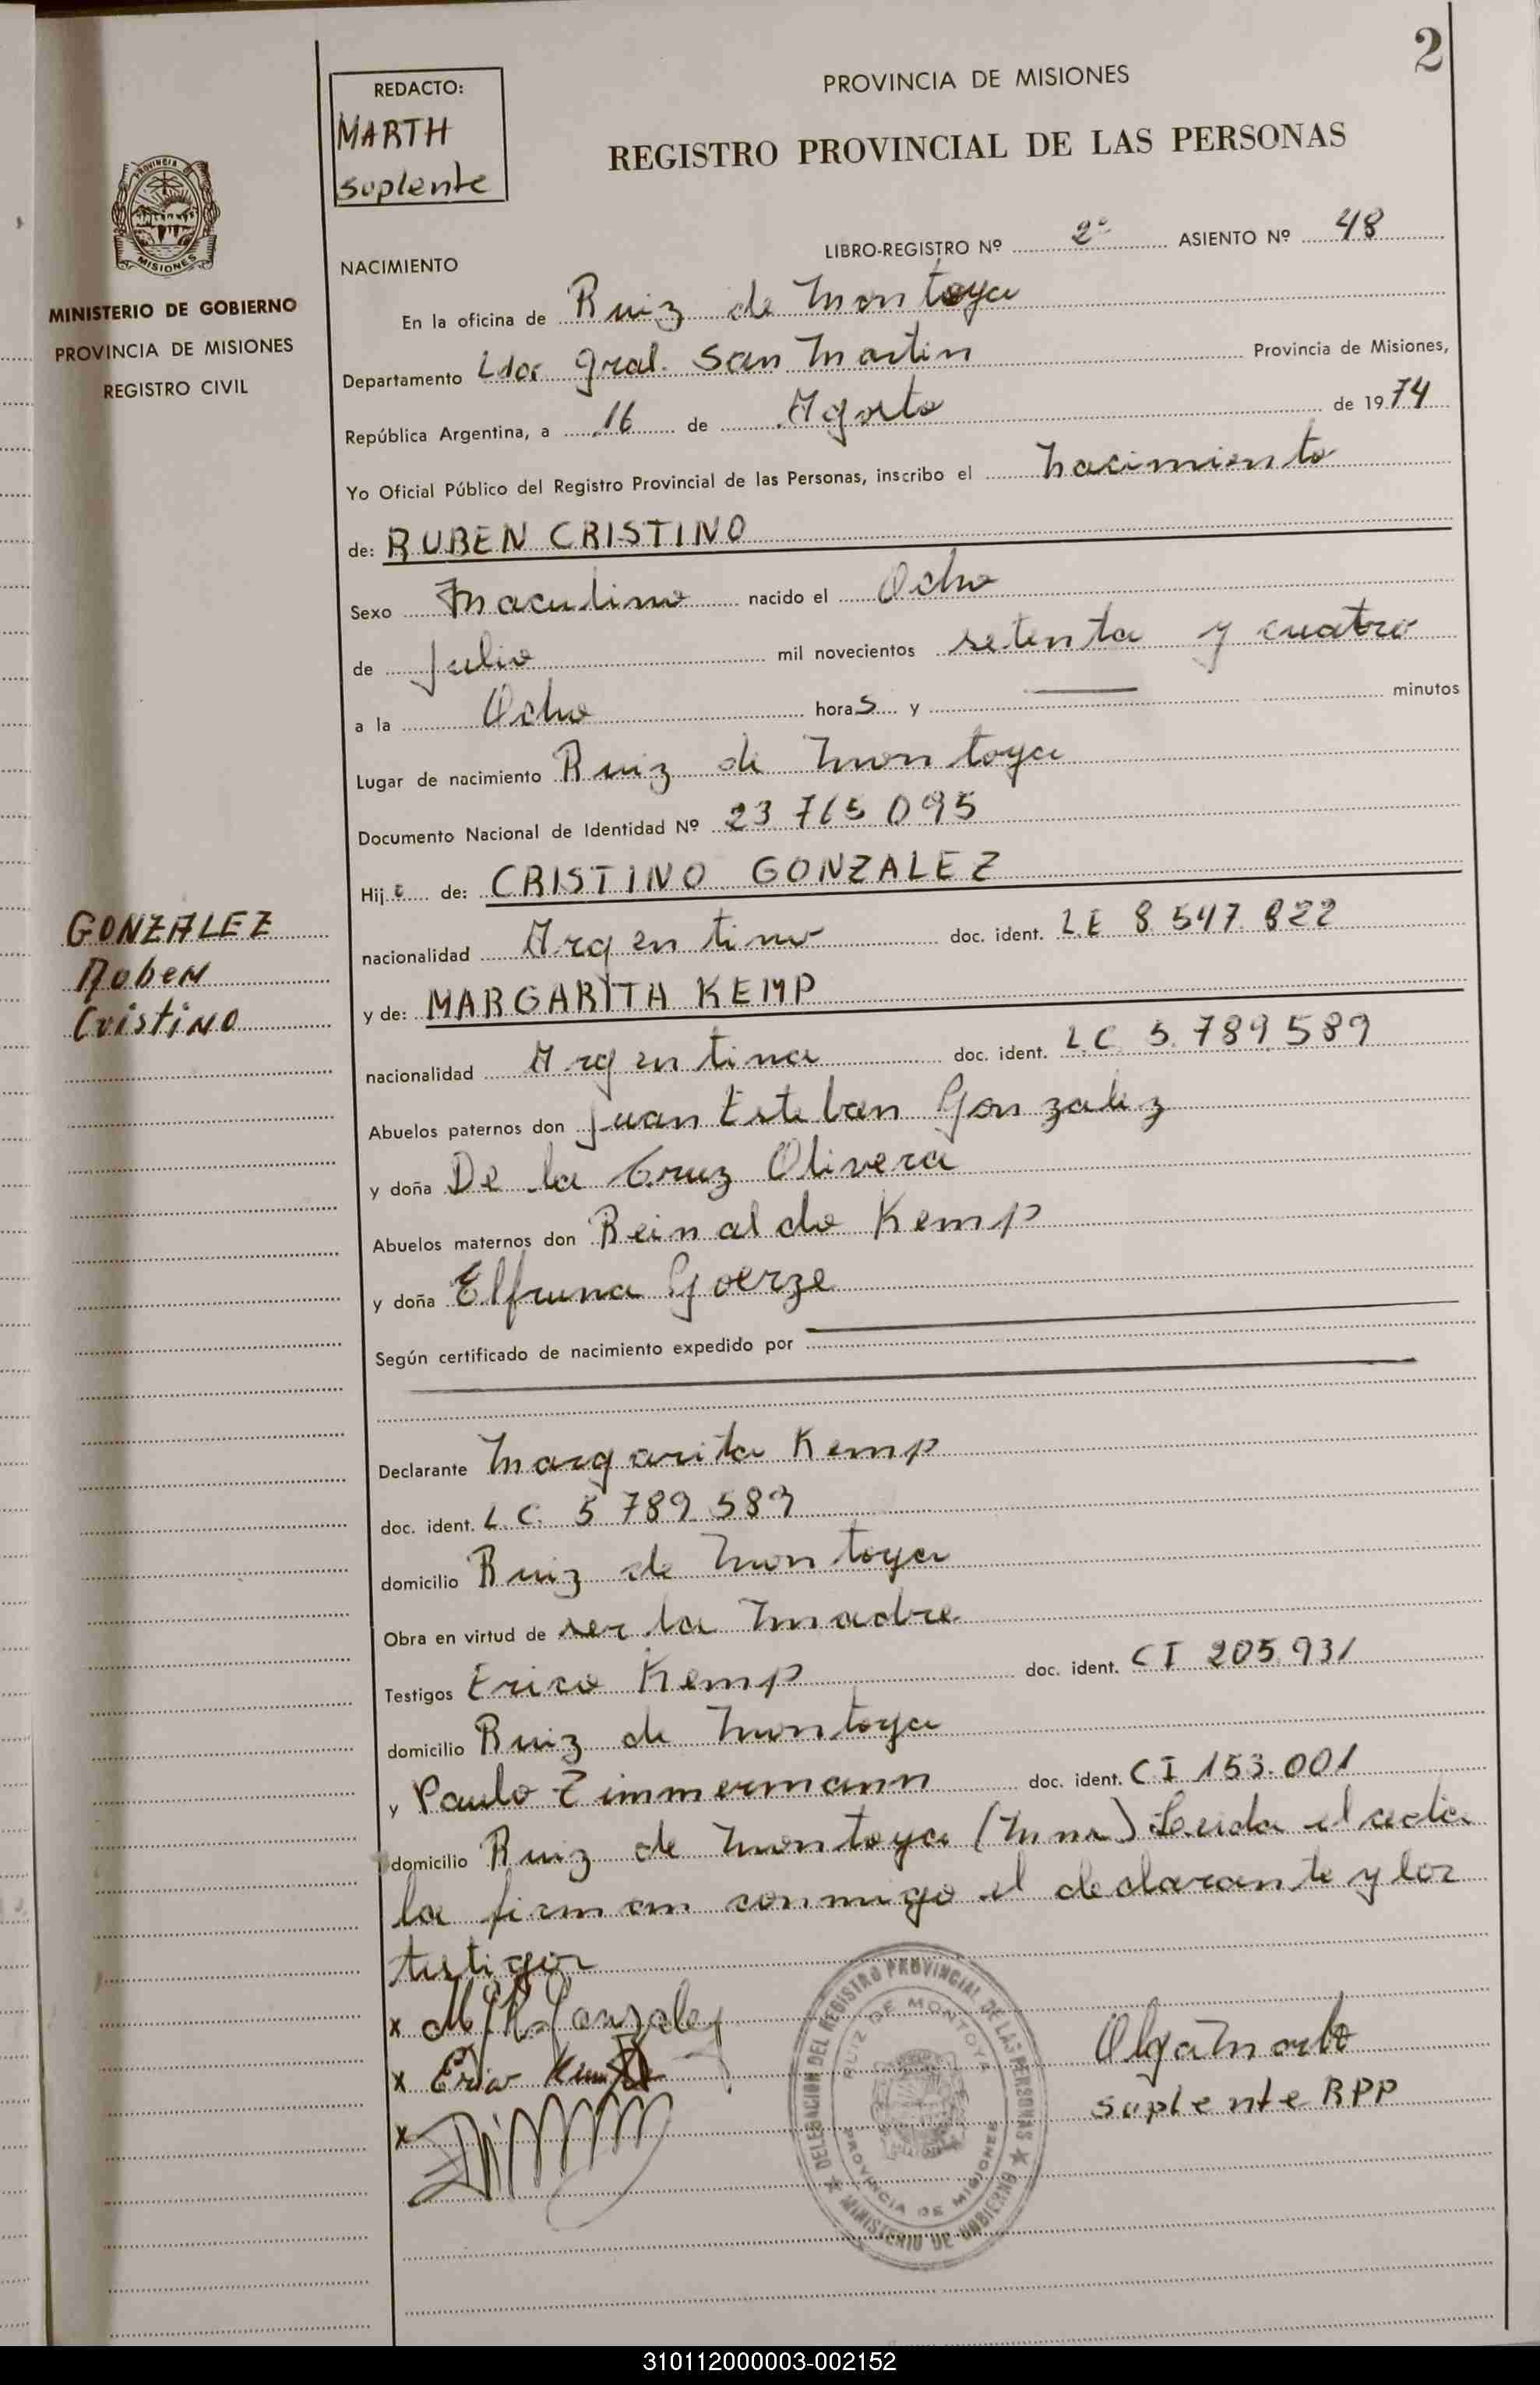 2
REDACTO:
MARTH
suplente
PROVINCIA DE MISIONES
REGISTRO PROVINCIAL DE LAS PERSONAS
PROVINCIA
MISIONES
MINISTERIO DE GOBIERNO
PROVINCIA DE MISIONES
REGISTRO CIVIL
LIBRO-REGISTRO Nº 2º ASIENTO Nº 48
NACIMIENTO
En la oficina de Ruiz de Montoya
Departamento Ldor Gral. San Martin Provincia de Misiones,
República Argentina, a 16 de Agosto de 1974
Yo Oficial Público del Registro Provincial de las Personas, inscribo el nacimiento
de: RUBEN CRISTINO
Sexo Maculino nacido el Ocho
de Julio mil novecientos setenta y cuatro
a la Ocho horas y — minutos
Lugar de nacimiento Ruiz de Montoya
Documento Nacional de Identidad Nº 23 765 095
Hijo de: CRISTINO GONZALEZ
nacionalidad Argentino doc. ident. LE 8 547 822
y de: MARGARITA KEMP
nacionalidad Argentina doc. ident. L.C. 5.789.589
GONZALEZ
Ruben
Cristino
Abuelos paternos don Juan Esteban Gonzalez
y doña De la Cruz Olivera
Abuelos maternos don Reinaldo Kemp
y doña Elfruna Goerze
Según certificado de nacimiento expedido por
Declarante Margarita Kemp
doc. ident. L.C. 5 789 589
domicilio Ruiz de Montoya
Obra en virtud de ser la madre
Testigos Erico Kemp doc. ident. CI 205.931
domicilio Ruiz de Montoya
y Paulo Zimmermann doc. ident. CI 153.001
domicilio Ruiz de Montoya (Mnes) Leida el acta
la firman conmigo el declarante y los
testigos
x M K Gonzalez
x Erico Kemp
x
Olga Marth
suplente RPP
DELEGACION DEL REGISTRO PROVINCIAL DE LAS PERSONAS
MINISTERIO DE GOBIERNO
RUIZ DE MONTOYA
PROVINCIA DE MISIONES
310112000003-002152